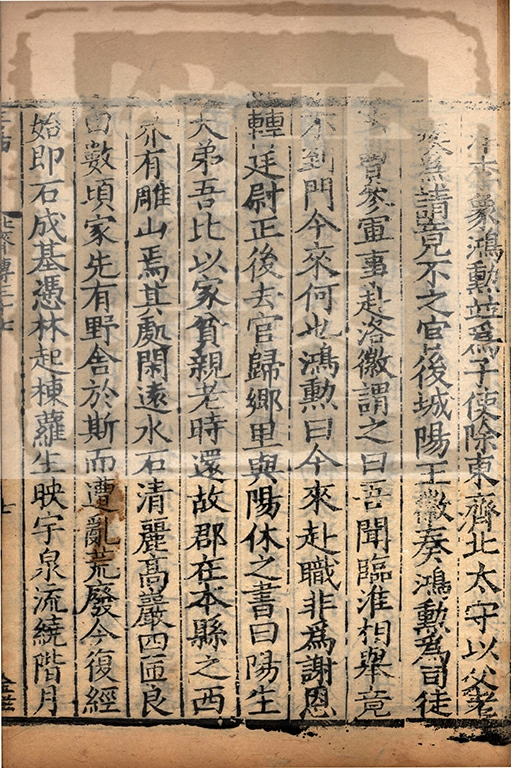 李象鴻勳並爲子使除東齊北太守以父老
疾爲請竟不之官後城陽王徽奏鴻勳爲司徒
曹參軍事赴洛徽謂之曰吾聞臨淮相舉竟
不到門今來何也鴻勳曰今來赴職非爲謝恩
轉廷尉正後去官歸鄉里與陽休之書曰陽生
大弟吾比以家貧親老時還故郡在本縣之西
亦有雕山焉其處閑遠水石清麗高巖四匝良
田數頃家先有野舍於斯而遭亂荒廢今復經
始即石成基憑林起棟蘿生映宇泉流繞階月
七